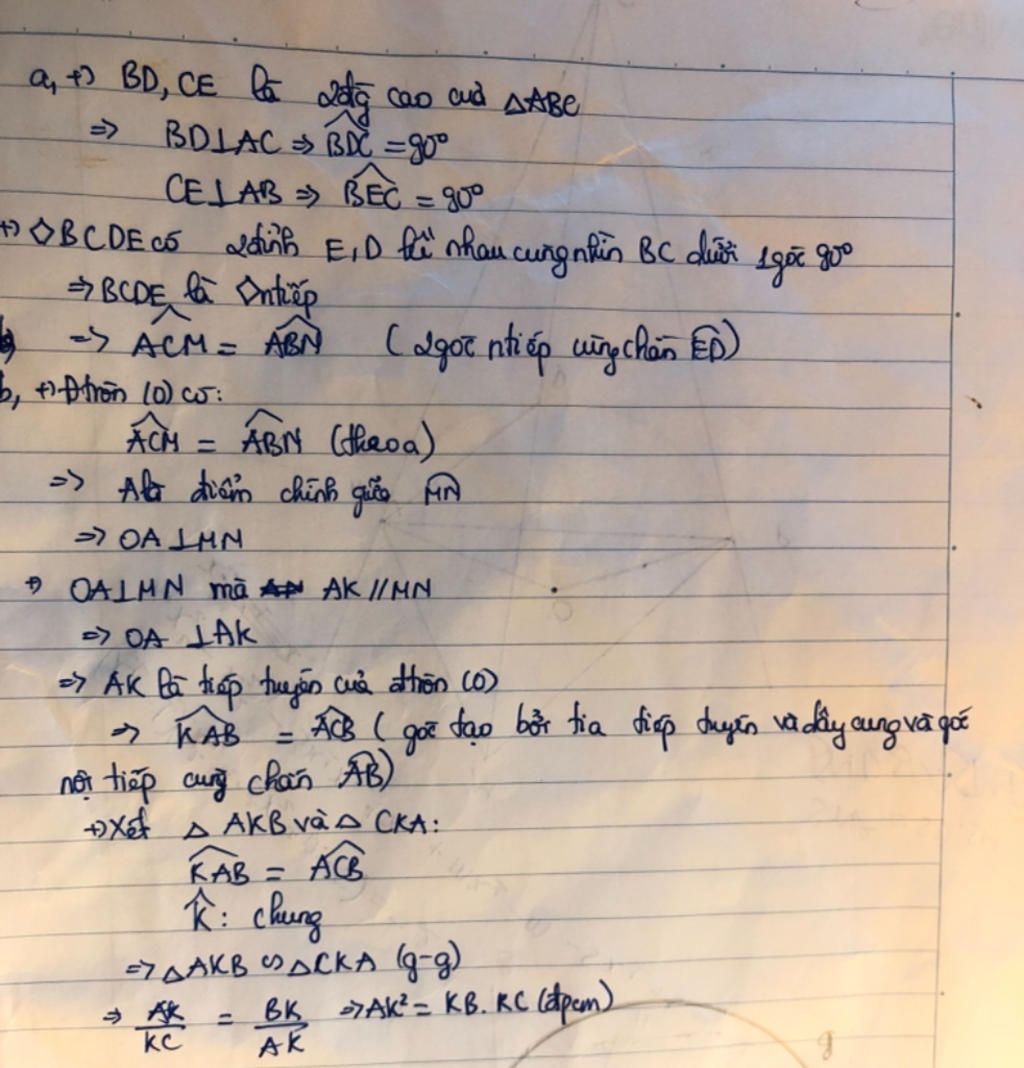 a, +) BD, CE là 2đg cao của △ABC
=> BD⊥AC => BDC = 90°
CE⊥AB => BEC = 90°
+) ◇BCDE có 2đỉnh E, D kề nhau cùng nhìn BC dưới 1góc 90°
=> BCDE là ◇ntiếp
=> ACM = ABN (2góc ntiếp cùng chắn ED)
b, +) Đtròn (O) có:
ACM = ABN (theo a)
=> A là điểm chính giữa MN
=> OA⊥MN
+) OA⊥MN mà AK//MN
=> OA ⊥AK
=> AK là tiếp tuyến của đtròn (O)
=> KAB = ACB ( góc tạo bởi tia tiếp tuyến và dây cung và góc
nội tiếp cùng chắn AB)
+) Xét △ AKB và △ CKA:
KAB = ACB
K: chung
=> △AKB ∽ △CKA (g-g)
=> AK/KC = BK/AK => AK² = KB. KC (đpcm)